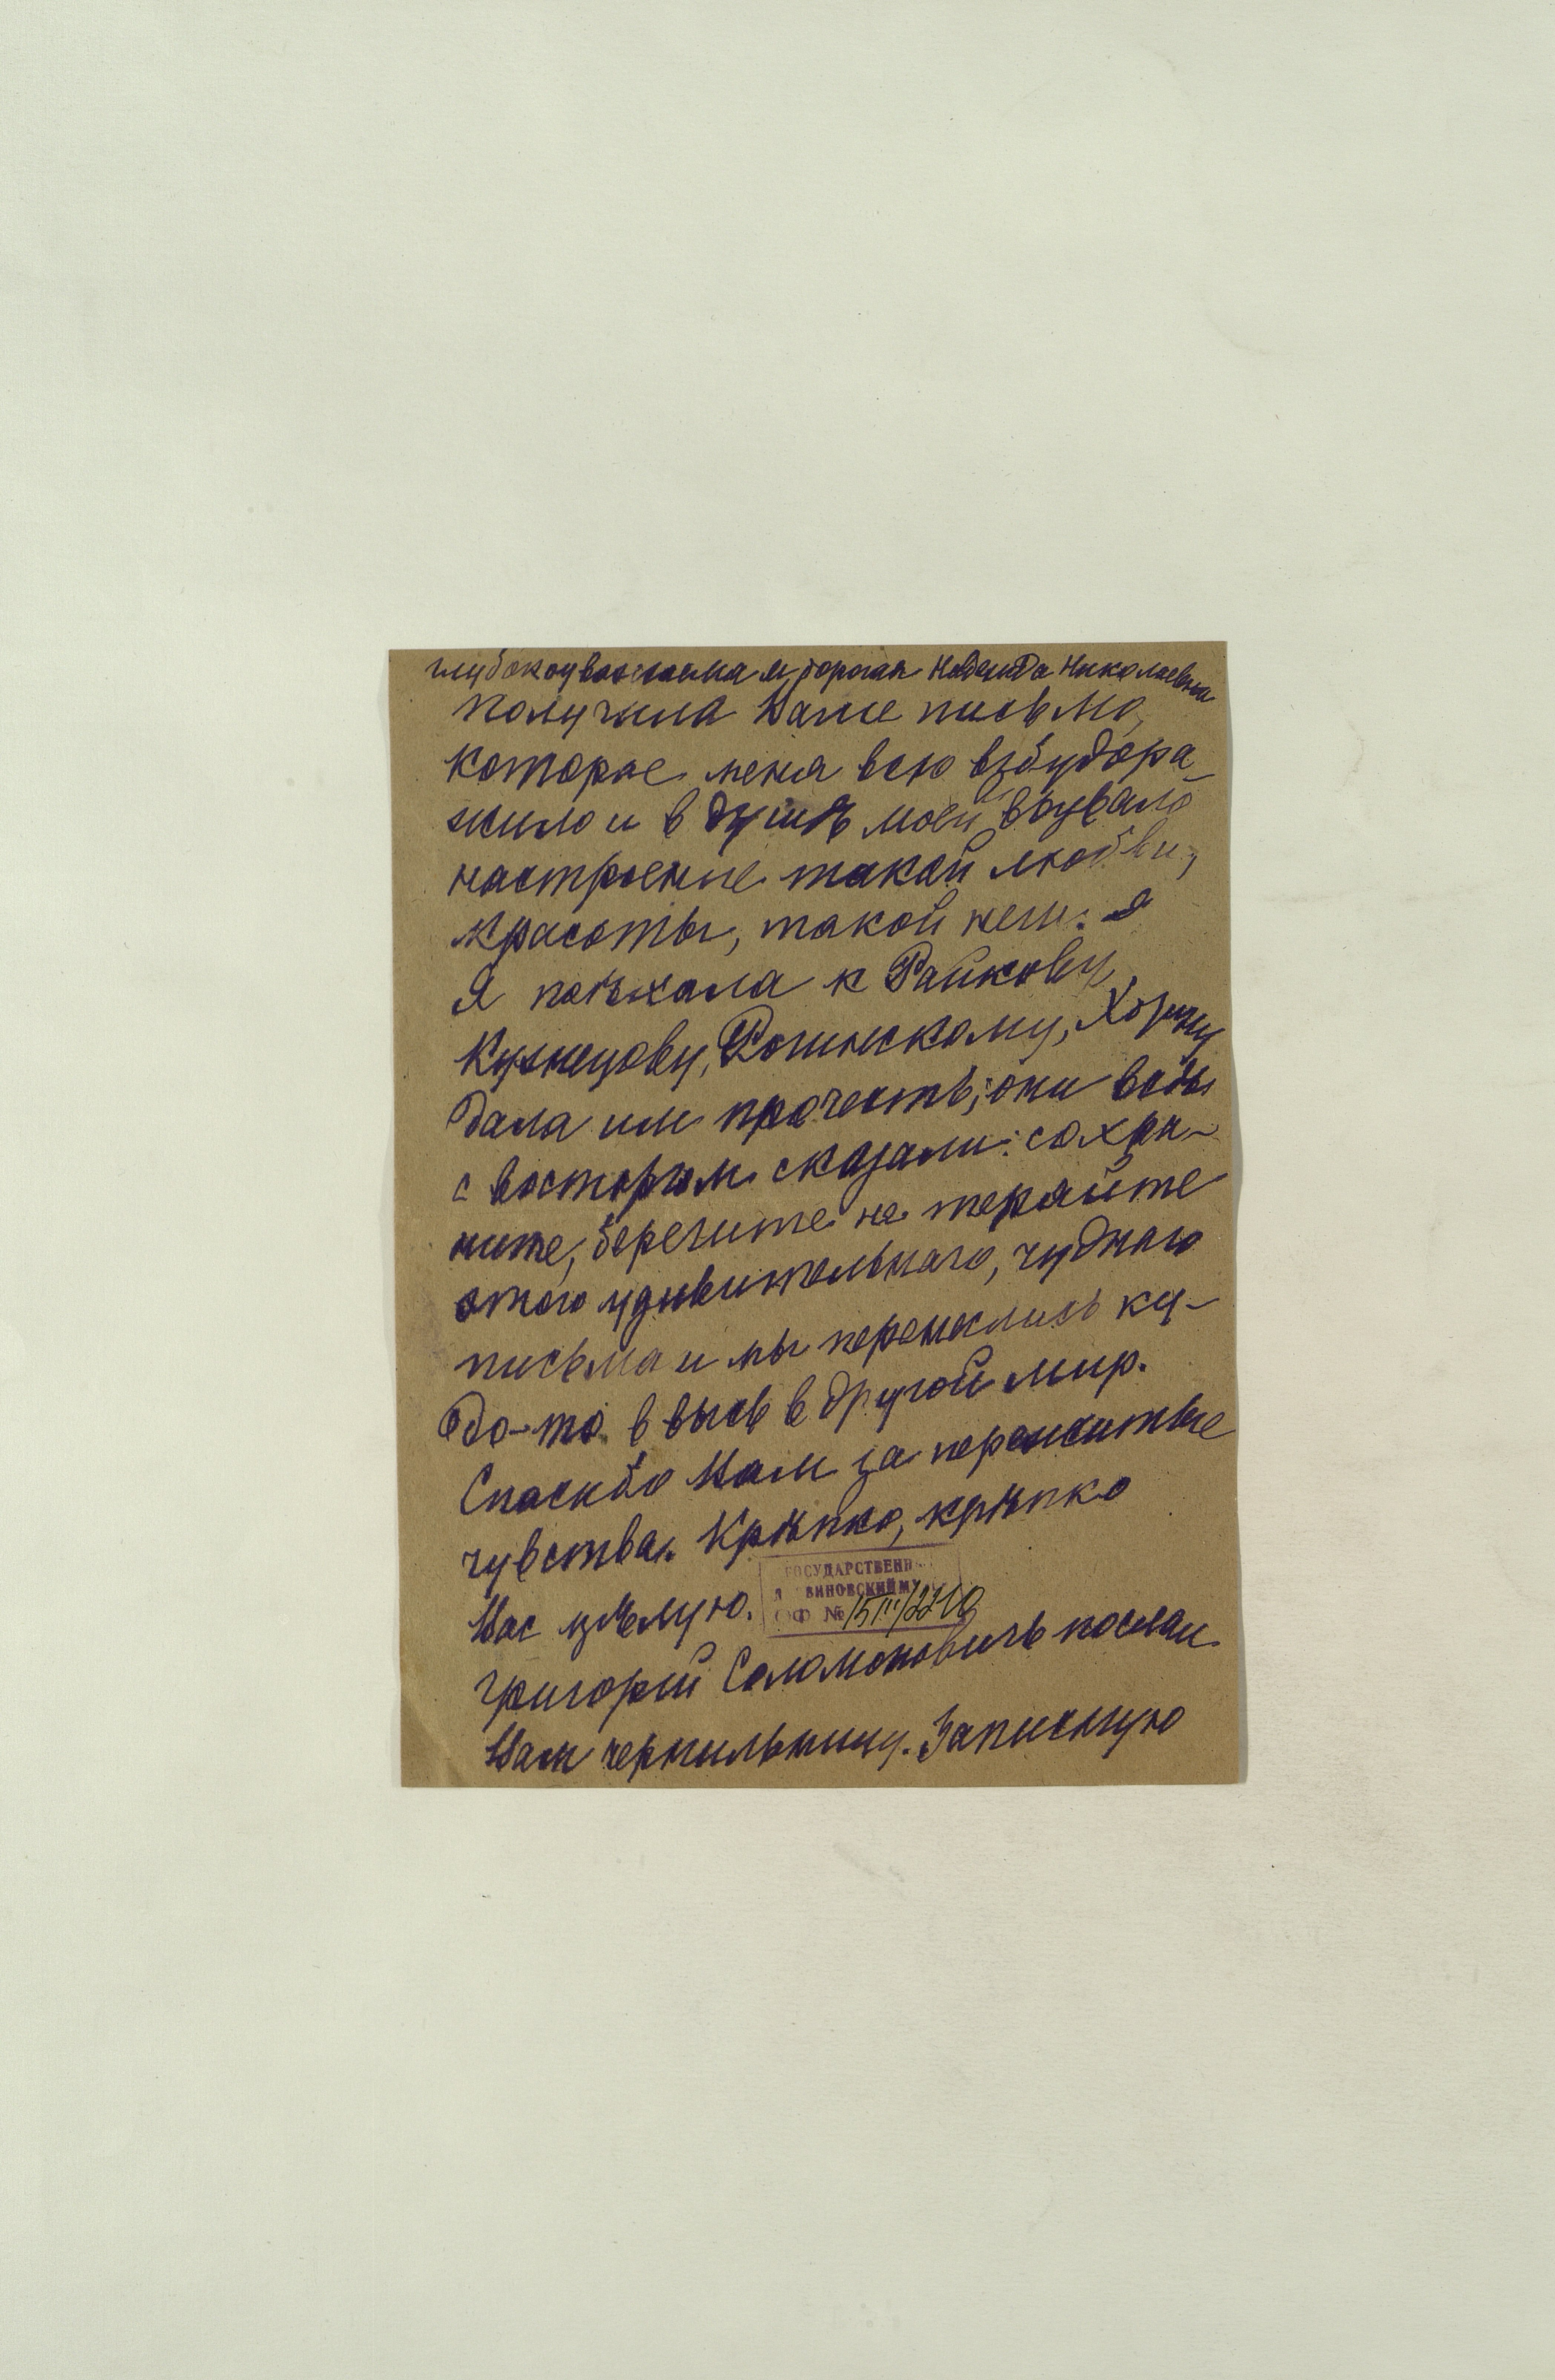 глубокоуважаемая, дорогая Надежда Николаевна
Получила Ваше письмо,
которое меня всю взбудора-
жило и в душѣ моей вызвало
настроение такой любви,
красоты, такой неги. я
Я поѣхала к Райкову,
Кузнецову, Рогинскому,
дала им прочесть; они всѣ
с восторгом сказали: сохра-
ните, берегите не теряйте
этого удивительнаго, чуднаго
письма и мы перенеслись ку-
да-то в высь в другой мир.
Спасибо Вам за пережитые
чувства. Крѣпко, крѣпко
Вас цѣлую.
ГОСУДАРСТВЕНН
ВИНОВСКИЙ МУ
ОФ № 15III/2210
Григорий Соломоновичъ послал
Вам чернильницу. Записную